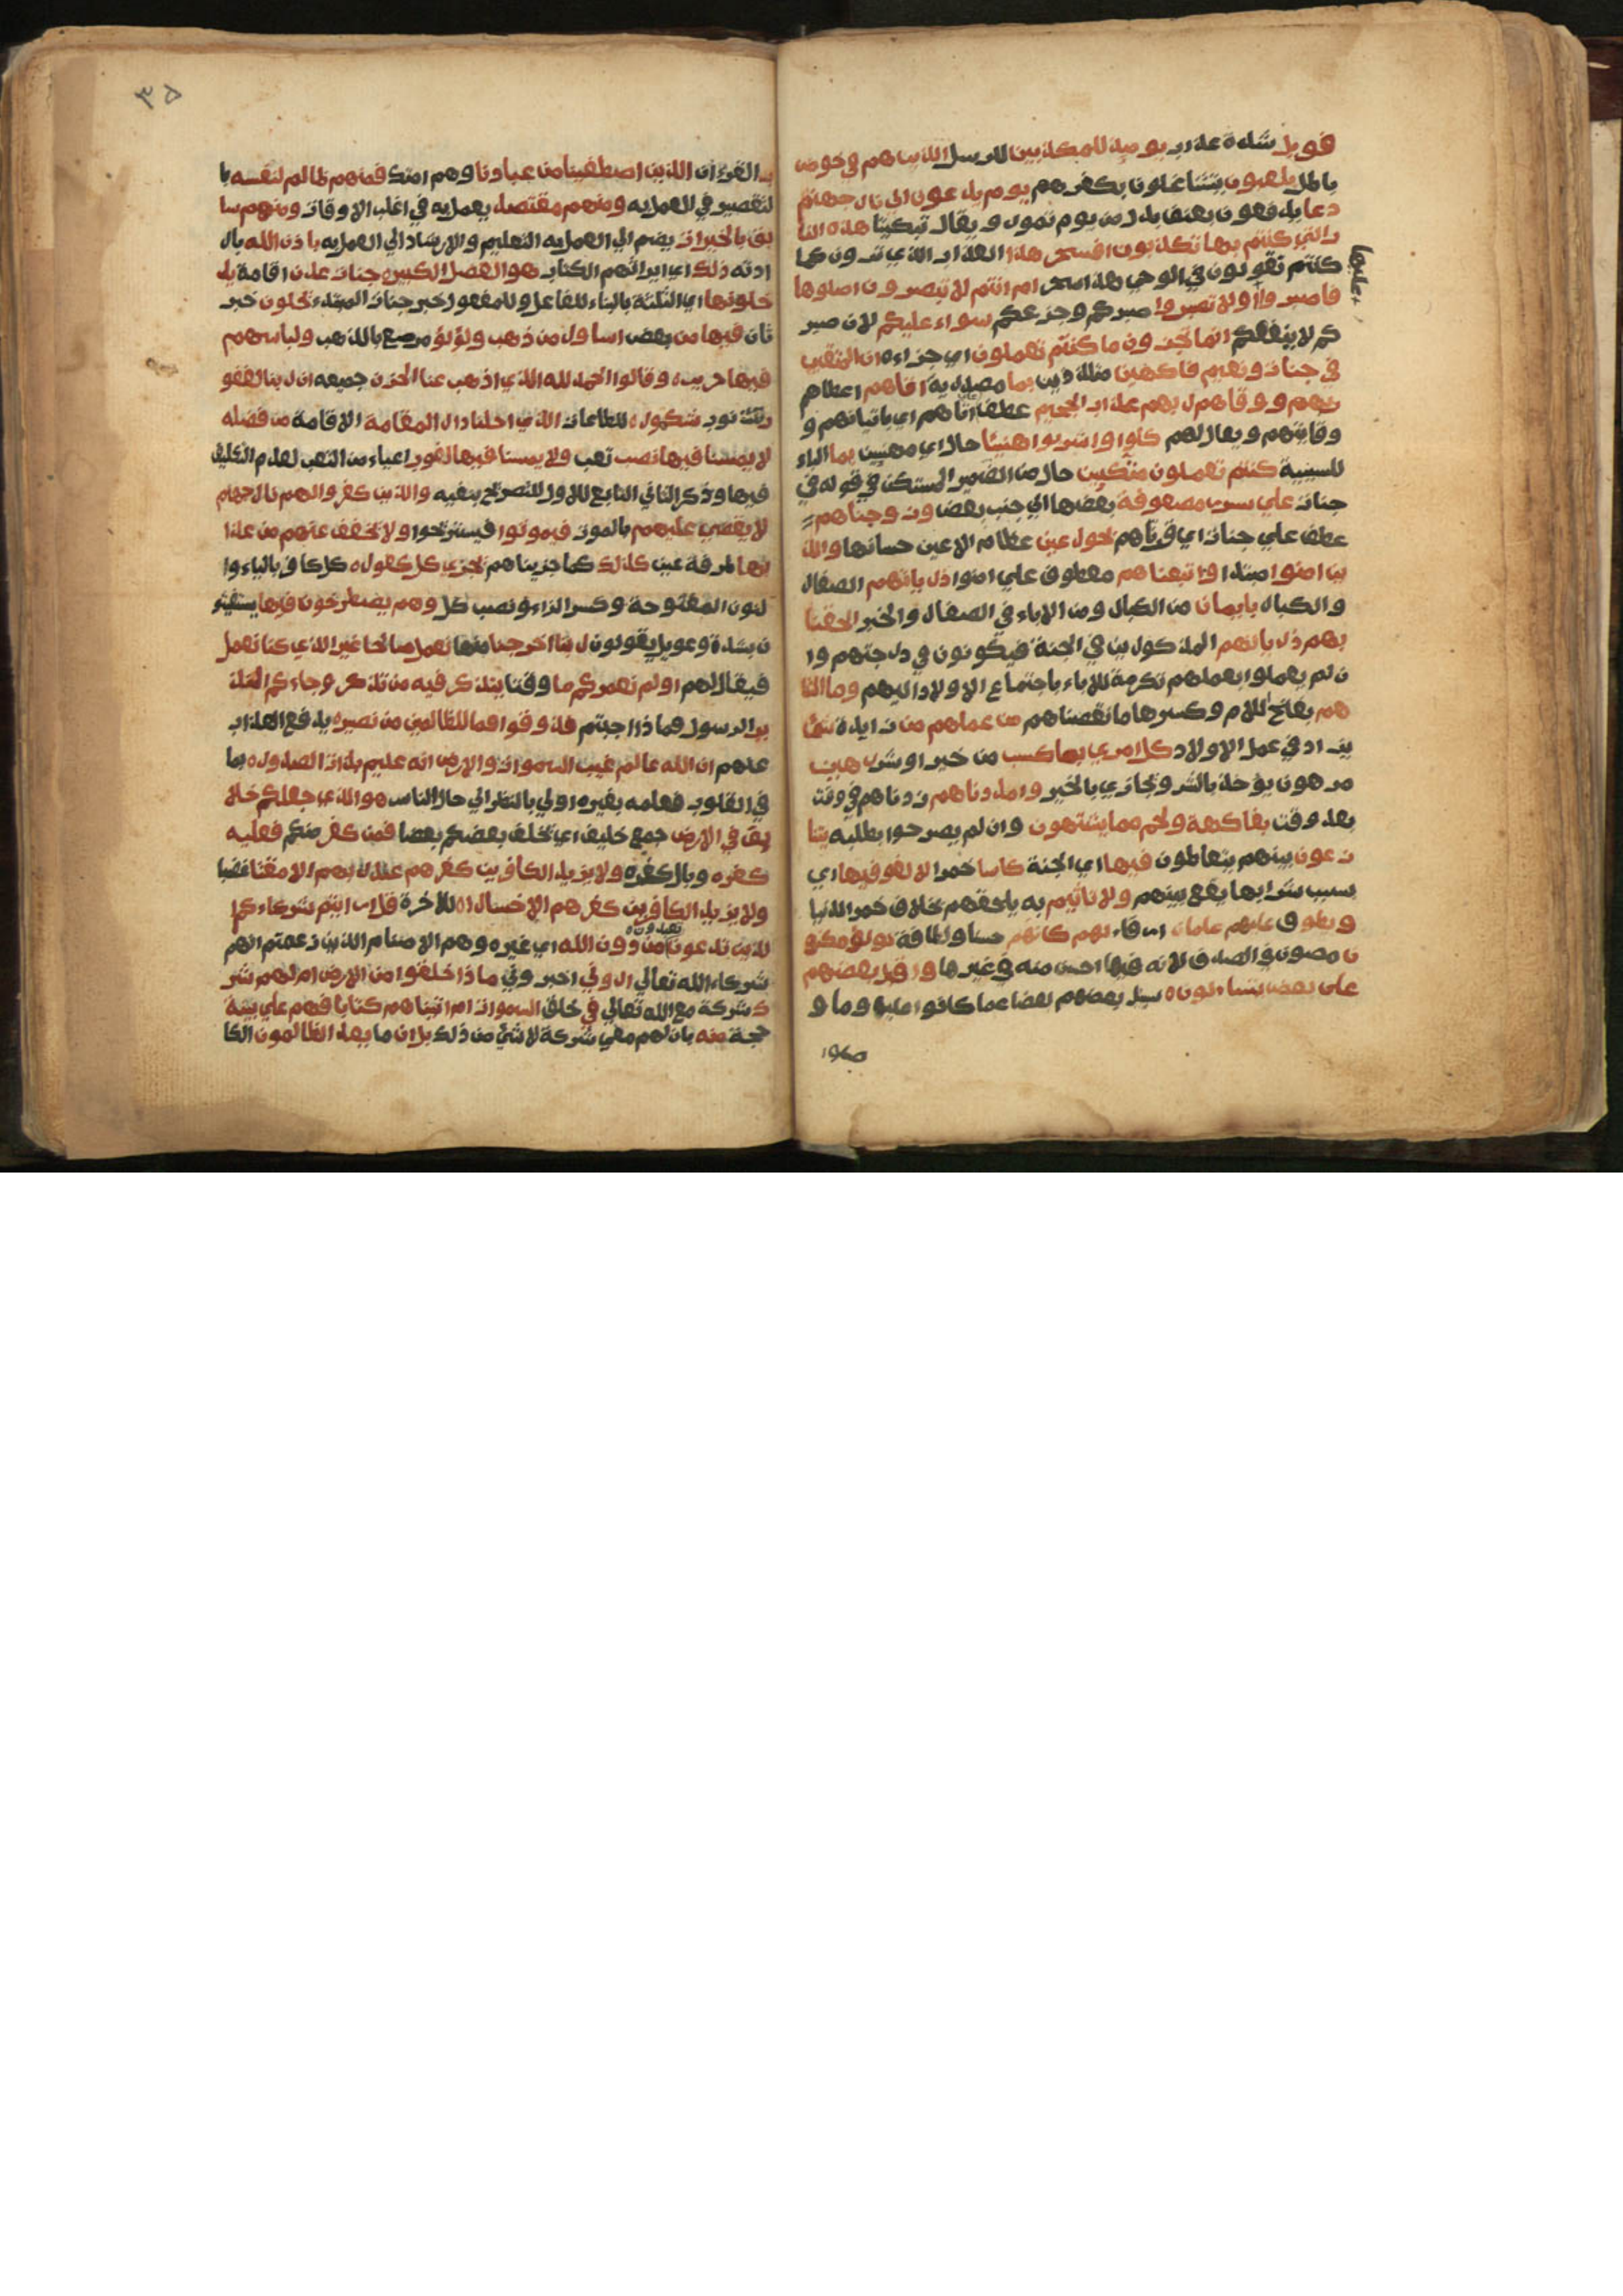 فويل شدة عذاب يوميذ للمكذبين للرسل الذين هم في خوض
باطل يلعبون يتشاغلون بكفرهم يوم يدعون الى نار جهنم
دعا يدفعون بعنف بدل من يوم تمور ويقال تبكيتا هذه النا
ر التي كنتم بها تكذبون افسحر هذا العذاب الذي ترون كما
كنتم تقولون في الوحي هذا سحر ام انتم لا تبصرون اصلوها
فاصبروا او لا تصبروا صبركم وجزعكم سواء عليكم لان صبر
كم لا ينفعكم انما تجزون ما كنتم تعملون اي جزاءه ان المتقين
في جنات ونعيم فاكهين متلذذين بما مصدرية اتاهم اعطاهم
ربهم ووقاهم ربهم عذاب الجحيم عطف اتاهم اي باتيانهم و
وقايتهم ويقال لهم كلوا واشربوا هنيئا حال اي مهنيين بما الباء
للسببية كنتم تعملون متكيين حال من الضمير المستكن في قوله في
جنات علي سرر مصفوفة بعضها الي جنب بعض وزوجناهم
عطف علي جنات اي قرناهم بحور عين عظام الاعين حسانها والذ
ين امنوا مبتدا واتبعناهم معطوف علي امنوا ذرياتهم الصغار
والكبار بايمان من الكبار ومن الاباء في الصغار والخبر الحقنا
بهم ذرياتهم المذكورين في الجنة فيكونون في درجتهم وا
ن لم يعملوا بعملهم تكرمة للاباء باجتماع الاولاد اليهم وما التنا
هم بفتح اللام وكسرها ما نقصناهم من عملهم من زايدة شئ
يزاد في عمل الاولاد كل امرئ بما كسب من خير او شر رهين
مرهون يؤخذ بالشر ويجازي بالخير وامددناهم زدناهم في وقت
بعد وقت بفاكهة ولحم مما يشتهون وان لم يصرحوا بطلبه يتنا
زعون بينهم يتعاطون فيها اي الجنة كاسا خمرا لا لغو فيها اي
بسبب شرابها يقع بينهم ولا تاثيم به يلحقهم بخلاف خمر الدنيا
ويطوف عليهم غلمان ارقاء لهم كانهم حسنا ولطافة لؤلؤ مكنو
ن مصون في الصدف لانه فيها احسن منه في غيرها واقبل بعضهم
علي بعض يتساءلون يسئل بعضهم بعضا عما كانوا عليه وما و
صلوا
٣٥
بـ القرءان الذين اصطفينا من عبادنا وهم امتك فمنهم ظالم لنفسه با
لتقصير في العمل به ومنهم مقتصد يعمل به في اغلب الاوقات ومنهم سا
بق بالخيرات يضم الي العمل به التعليم والارشاد الي العمل به باذن الله بار
ادته ذلك اي ايراثهم الكتاب هو الفضل الكبير جنات عدن اقامة يد
خلونها اي الثلثة بالبناء للفاعل وللمفعول خبر جنات المبتداء يحلون خبر
ثان فيها من بعض اساور من ذهب ولؤلؤ مرصع بالذهب ولباسهم
فيها حرير وقالوا الحمد لله الذي اذهب عنا الحزن جميعه ان ربنا لغفو
ر للذنوب شكور للطاعات الذي احلنا دار المقامة الاقامة من فضله
لا يمسنا فيها نصب تعب ولا يمسنا فيها لغوب اعياء من التعب لعدم التكليف
فيها وذكر الثاني التابع للاول للتصريح بنفيه والذين كفروا لهم نار جهنم
لا يقضي عليهم بالموت فيموتوا فيستريحوا ولا يخفف عنهم من عذا
بها طرفة عين كذلك كما جزيناهم نجزي كل كفور كل كافر بالياء وا
لنون المفتوحة وكسر الزاء ونصب كل وهم يصطرخون فيها يستغيثو
ن بشدة وعويل يقولون ربنا اخرجنا منها نعمل صالحا غير الذي كنا نعمل
فيقال لهم اولم نعمركم ما وقتا يتذكر فيه من تذكر وجاءكم النذ
ير الرسول فما اجبتم فذوقوا فما للظالمين من نصير يدفع العذاب
عنهم ان الله عالم غيب السموات والارض انه عليم بذات الصدور بما
في القلوب فعلمه بغيره اولي بالنظر الي حال الناس هو الذي جعلكم خلا
يف في الارض جمع خليفة اي يخلف بعضكم بعضا فمن كفر منكم فعليه
كفره وبال كفره ولا يزيد الكافرين كفرهم عند ربهم الا مقتا غضبا
ولا يزيد الكافرين كفرهم الا خسارا للاخرة قل ارايتم شركاءكم ا
لذين تدعون تعبدون من دون الله اي غيره وهم الاصنام الذين زعمتم انهم
شركاء الله تعالي اروني اخبروني ما ذا خلقوا من الارض ام لهم شر
ك شركة مع الله تعالي في خلق السموات ام اتيناهم كتابا فهم علي بينة
حجة منه بان لهم معي شركة لا شئ من ذلك بل ان ما يعد الظالمون الكا